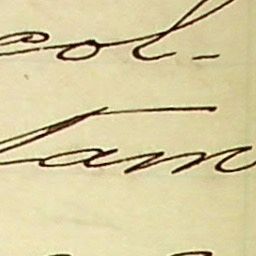 col-
tam